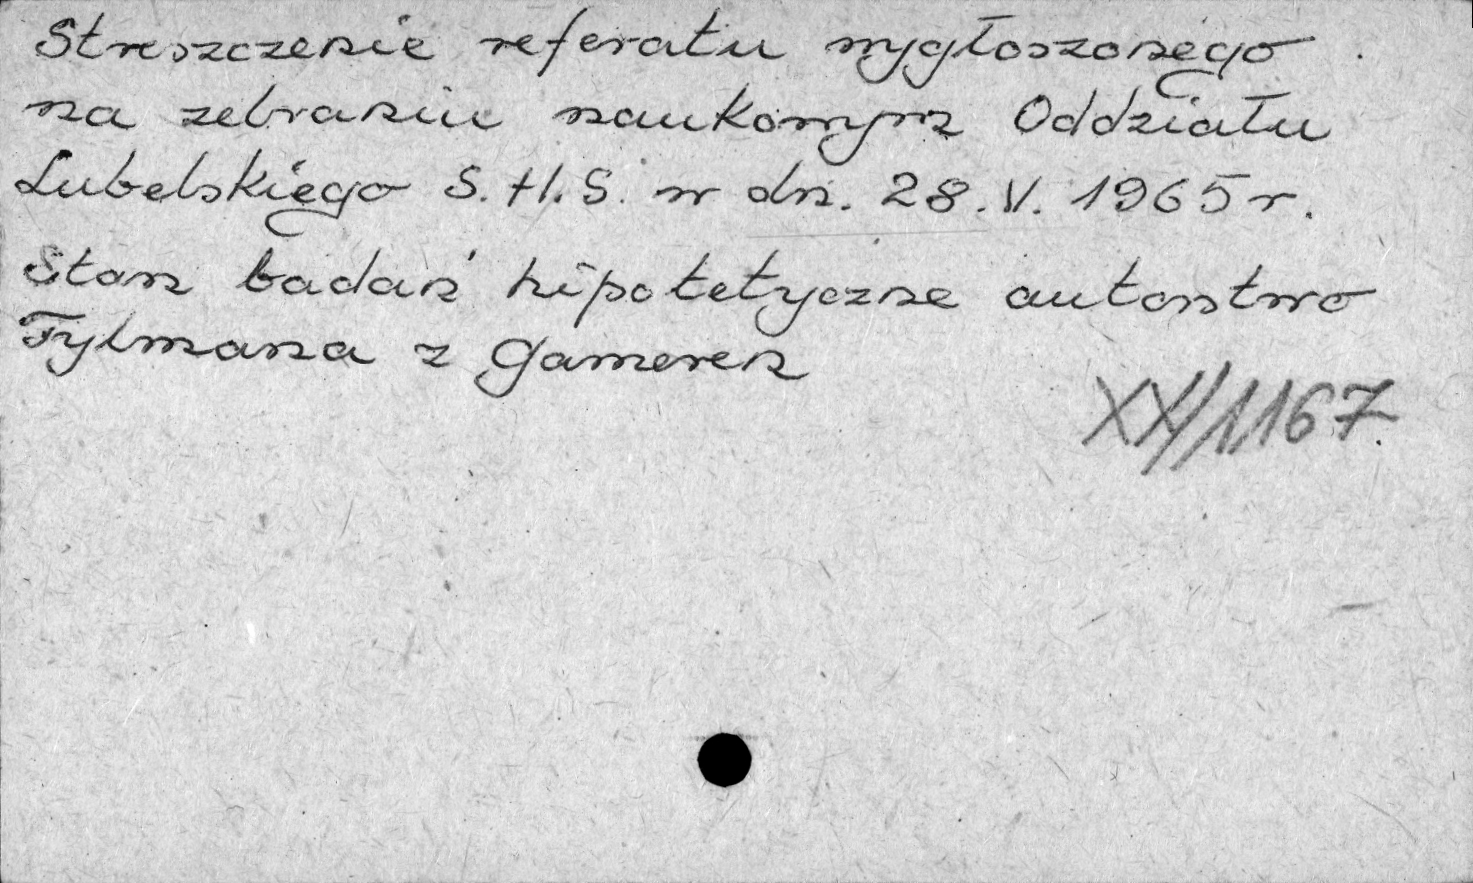 Streszczenie referatu wygłoszonego
na zebraniu naukowym Oddziału
Lubelskiego S.H.S. w dn. 28.V. 1965 r.
Stan badań hipotetyczne autorstwo
Tylmana z Gameren
XX/1167